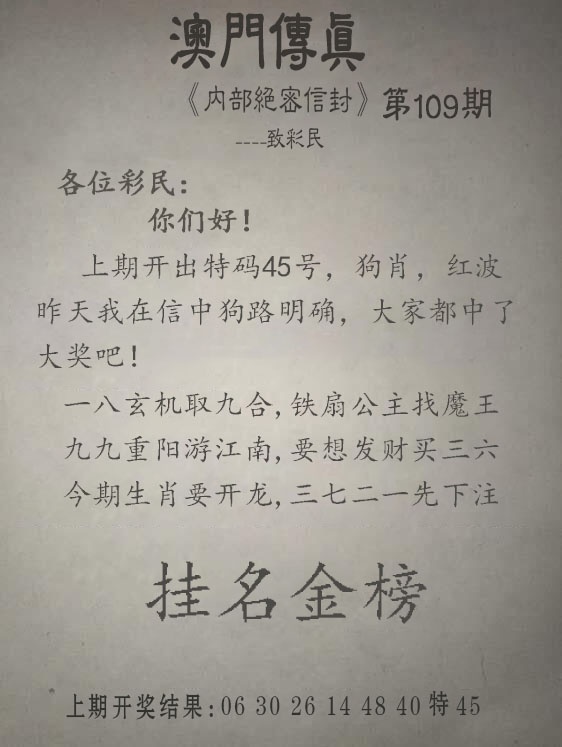 澳門傳眞
《内部絕密信封》第109期
----致彩民
各位彩民：
你们好！
上期开出特码45号，狗肖，红波
昨天我在信中狗路明确，大家都中了
大奖吧！
一八玄机取九合,铁扇公主找魔王
九九重阳游江南,要想发财买三六
今期生肖要开龙,三七二一先下注
挂名金榜
上期开奖结果:06 30 26 14 48 40特45